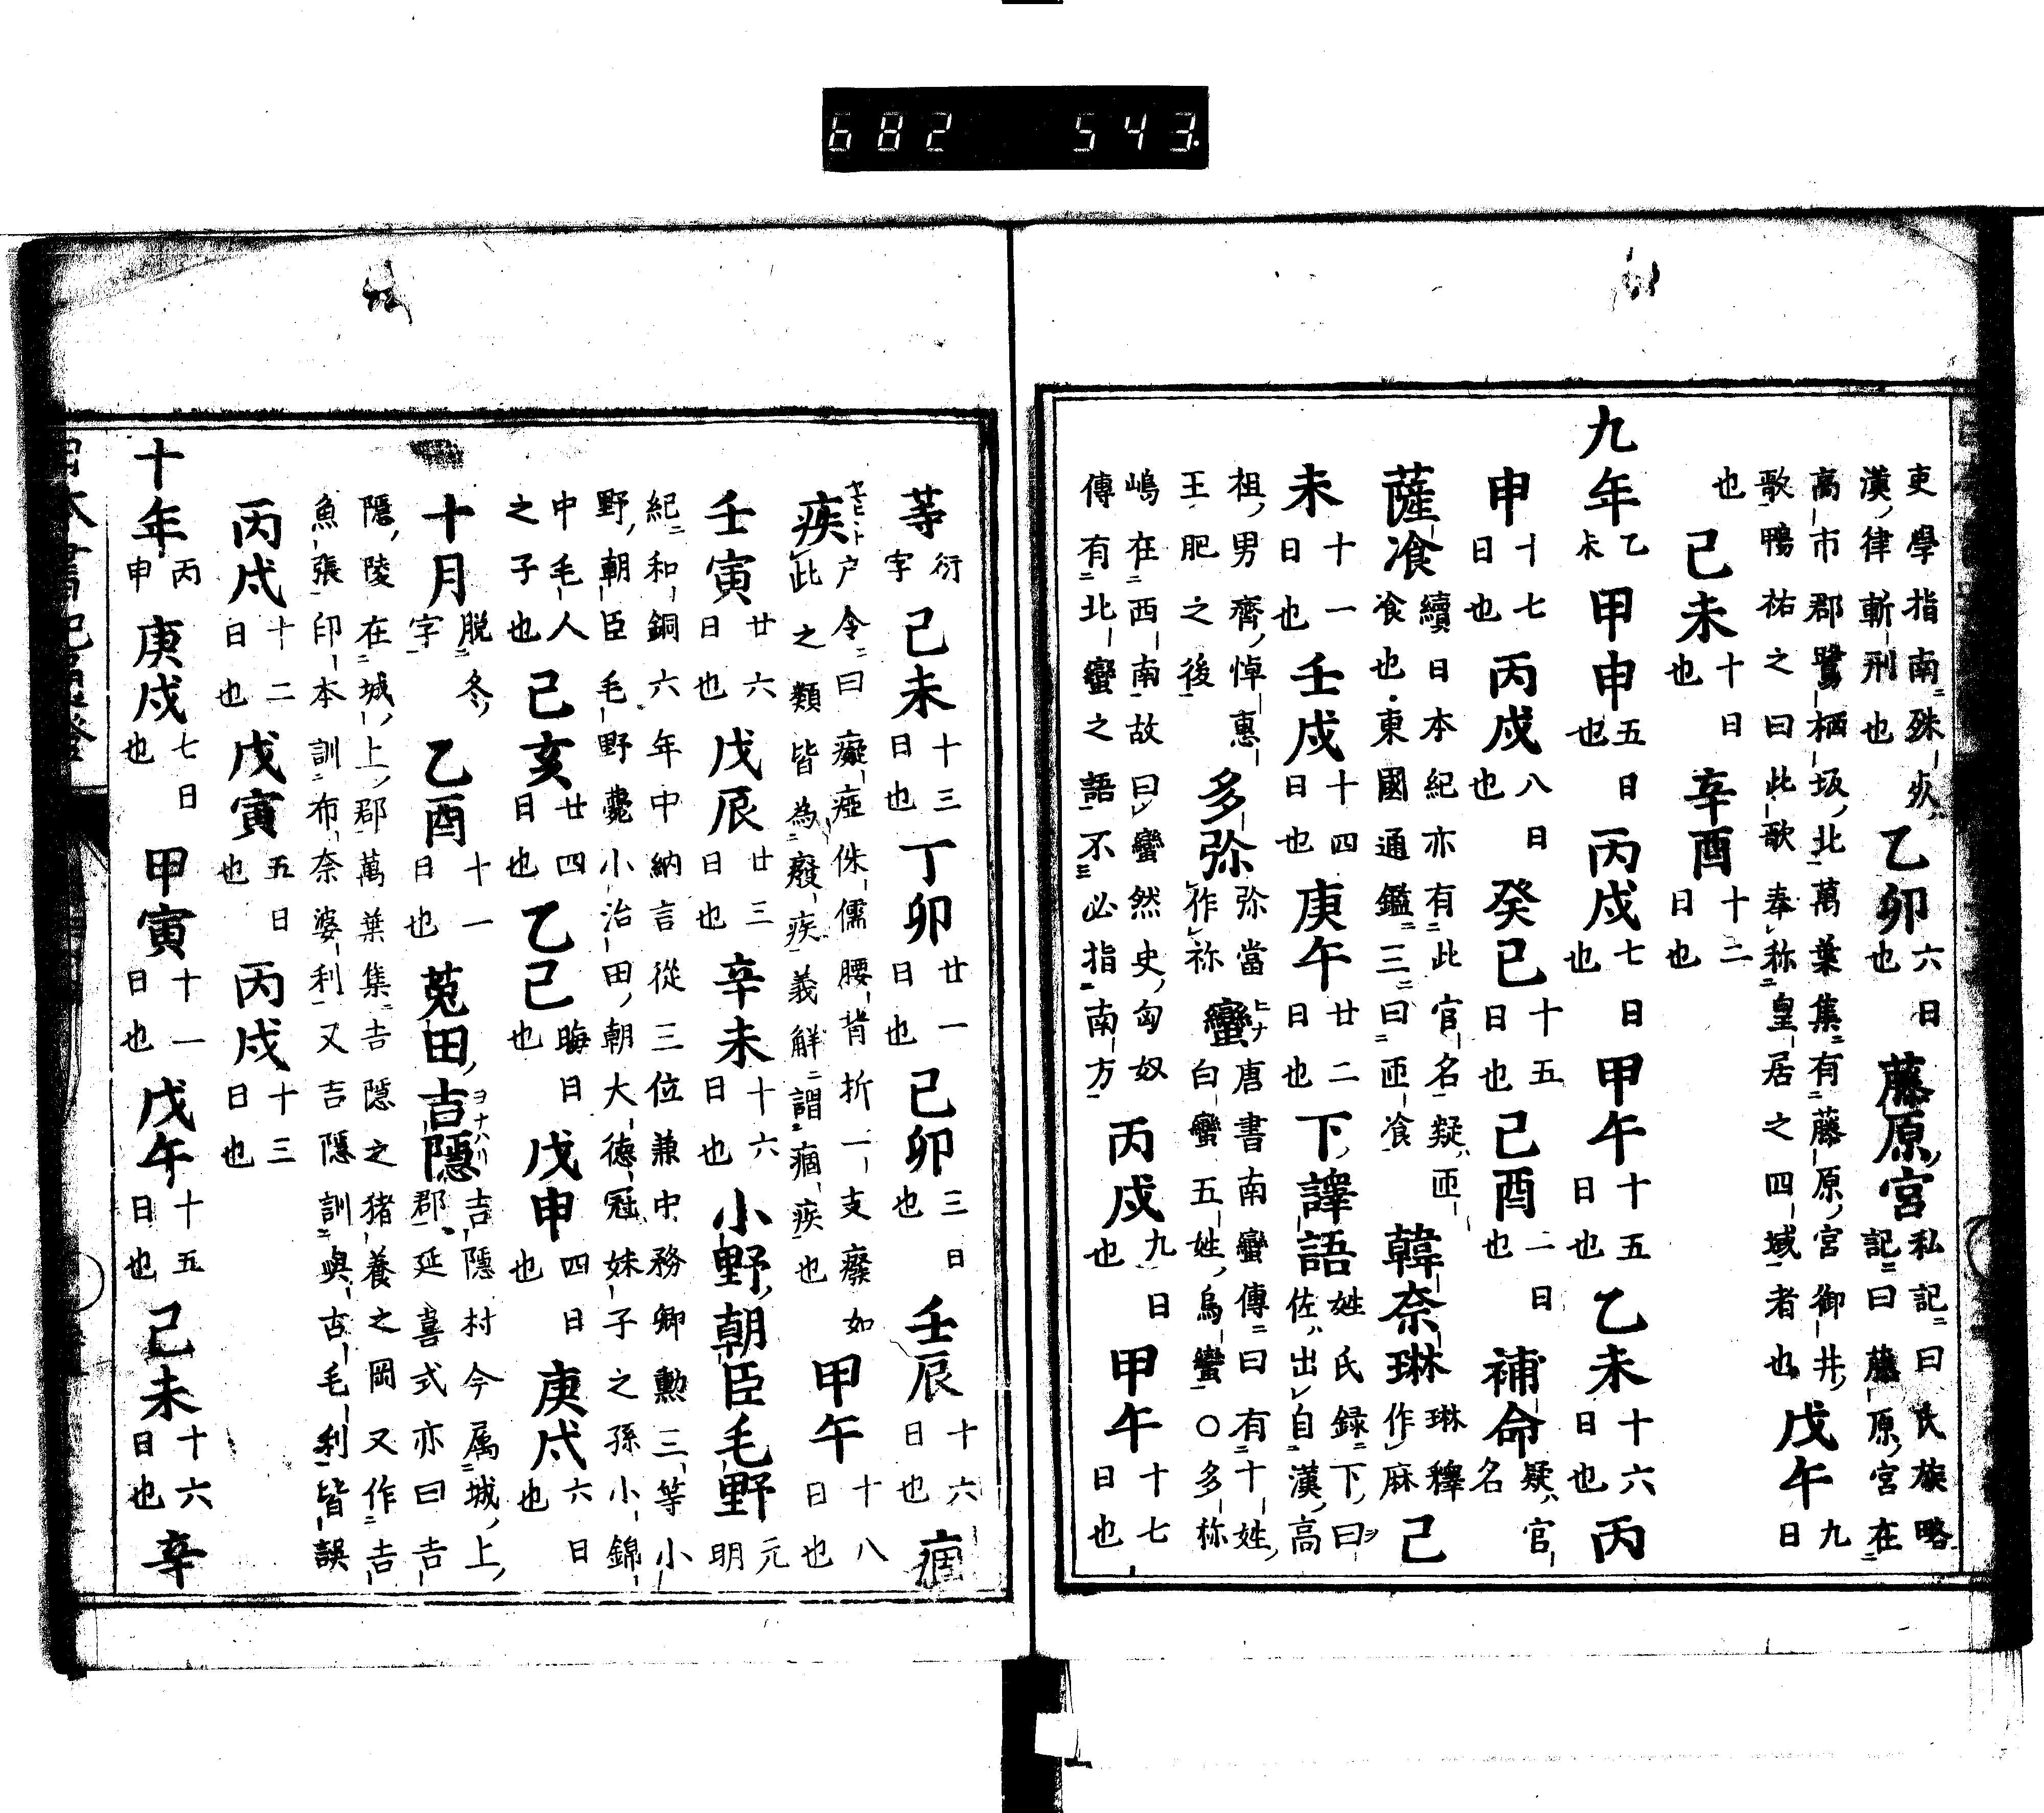 682 543.
吏學指南殊夾
漢律斬刑也
乙卯六日也
藤原宮私記曰氏族略記曰藤原宮在
高市郡鷺栖坂北萬葉集有藤原宮御井
歌鴨祐之曰此歌奉称皇居之四域者也
戊午九日
也
己未十日也
辛酉十二日也
九年乙未
甲申五日也
丙戌七日也
甲午十五日也
乙未十六日也
丙
申十七日也
丙戌八日也
癸巳十五日也
己酉二日也
補命疑官名
薩飡續日本紀亦有此官名疑匝
飡也東國通鑑三曰匝飡
韓奈琳琳釋作麻
己
未十一日也
壬戌十四日也
庚午廿二日也
下譯語姓氏録下曰
佐出自漢高
祖男齊悼惠
王肥之後
多弥弥當作祢
蠻ヒナ唐書南蠻傳曰有十姓
白蠻五姓烏蠻〇多称
嶋在西南故曰蠻然史匈奴
傳有北蠻之語不必指南方
丙戌九日也
甲午十七日也
等衍字
己未十三日也
丁卯廿一日也
己卯三日也
壬辰十六日也
痼
疾ヤヒト户令曰癡瘂侏儒腰背折一支廢如
此之類皆為癈疾義解謂痼疾也
甲午十八日也
壬寅廿六日也
戊辰廿三日也
辛未十六日也
小野朝臣毛野元明
紀和銅六年中納言從三位兼中務卿勳三等小
野朝臣毛野薨小治田朝大徳冠妹子之孫小錦
中毛人
之子也
己亥廿四日也
乙巳晦日也
戊申四日也
庚戌六日也
十月脱冬字
乙酉十一日也
菟田吉隱ヨナハリ吉隱村今属城上
郡延喜式亦曰吉
隱陵在城上郡萬葉集吉隱之猪養之岡又作吉
魚張印本訓布奈婆利又吉隱訓與古毛利皆誤
丙戌十二日也
戊寅五日也
丙戌十三日也
十年丙申
庚戌七日也
甲寅十一日也
戊午十五日也
己未十六日也
辛